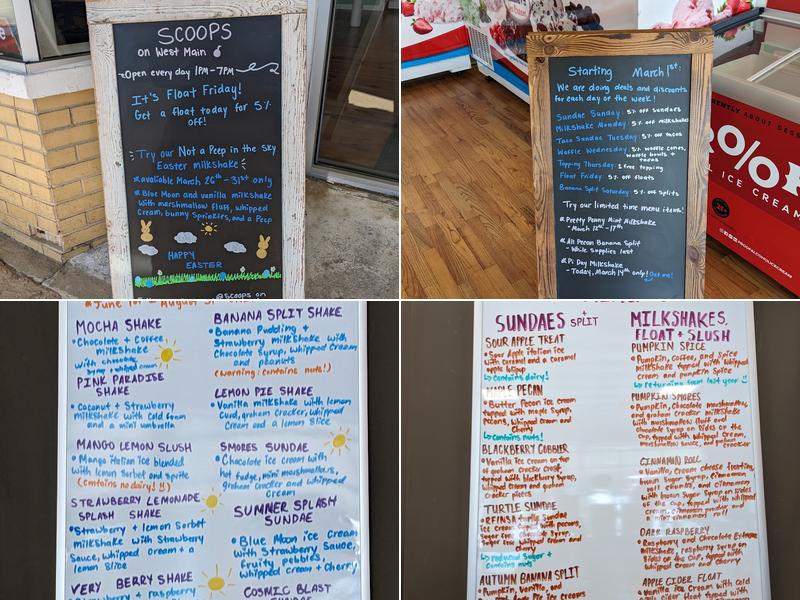 SCOOPS
on West Main
Open every day 1PM-7PM
It's Float Friday!
Get a float today for 5%
off!
Try our Not a Peep in the Sky
Easter milkshake
*available March 26th-31st only
*Blue Moon and vanilla milkshake
with marshmallow fluff, whipped
Cream, bunny Sprinkles, and a Peep
HAPPY
EASTER
@Scoops on
Starting March 1st:
We are doing deals and discounts
for each day of the week!
Sundae Sunday: 5% off Sundaes
Milkshake Monday: 5% off milkshakes
Taco Sundae Tuesday: 5% off tacos
Waffle Wednesday: 5% waffle cones,
waffle bowls +
tacos
Topping Thursday: 1 free topping
Float Friday: 5% off floats
Banana Split Saturday: 5% off Splits
Try our limited time menu items!
*Pretty Penny Mint Milkshake
- March 12th-17th
*All Pecan Banana Split
- While supplies last
*Pi Day Milkshake
- Today, March 14th only!
0%
ICE CREAM
*June 1st - August 31
MOCHA SHAKE
• Chocolate + Coffee
milkshake
with chocolate
PINK PARADISE
SHAKE
• Coconut + Strawberry
milkshake with cold foam
and a mini umbrella
MANGO LEMON SLUSH
• Mango italian ice blended
with lemon Sorbet and Sprite
(contains no dairy! !!)
STRAWBERRY LEMONADE
SPLASH SHAKE
• Strawberry + lemon Sorbet
milkshake with Strawberry
Sauce, whipped cream + a
lemon Slice
VERY BERRY SHAKE
• Strawberry + raspberry
BANANA SPLIT SHAKE
• Banana Pudding +
Strawberry milkshake with
Chocolate Syrup, Whipped Cream
and peanuts
(warning: contains nuts!)
LEMON PIE SHAKE
• Vanilla milkshake with lemon
Curd, graham Cracker, whipped
Cream and a lemon Slice
SMORES SUNDAE
• Chocolate ice cream with
hot fudge, mini marshmallows,
graham Cracker and whipped
Cream
SUMMER SPLASH
SUNDAE
• Blue Moon ice Cream
with Strawberry Sauce,
fruity pebbles,
whipped cream + cherry
COSMIC BLAST
SUNDAES + SPLIT
SOUR APPLE TREAT
• Sour Apple italian ice
with caramel and a caramel
apple lollipop
↳ contains dairy!
MAPLE PECAN
• Butter Pecan ice cream
topped with maple Syrup,
pecans, whipped cream and
Cherry
↳ contains nuts!
BLACKBERRY COBBLER
• Vanilla ice cream on top
of graham cracker crust,
topped with blackberry Syrup,
whipped cream and graham
cracker pieces
TURTLE SUNDAE
cherry
↳ reduced Sugar +
contains nuts
AUTUMN BANANA SPLIT
• Pumpkin, vanilla, and
MILKSHAKES,
FLOAT + SLUSH
PUMPKIN SPICE
• Pumpkin, Coffee, and Spice
milkshake topped with whipped
cream and pumpkin spice
↳ returning from last year !!
PUMPKIN SMORES
• Pumpkin, chocolate, marshmallow,
and graham Cracker milkshake
with marshmallow fluff and
chocolate Syrup on Sides of the
cup, topped with whipped Cream,
marshmallow Sauce, and graham
cracker
CINNAMON ROLL
• Vanilla, cream cheese frosting,
DARK RASPBERRY
• Raspberry and Chocolate Extreme
milkshake, raspberry Syrup on
Sides of the cup, topped with
whipped Cream and
APPLE CIDER FLOAT
• Vanilla ice cream with Cold